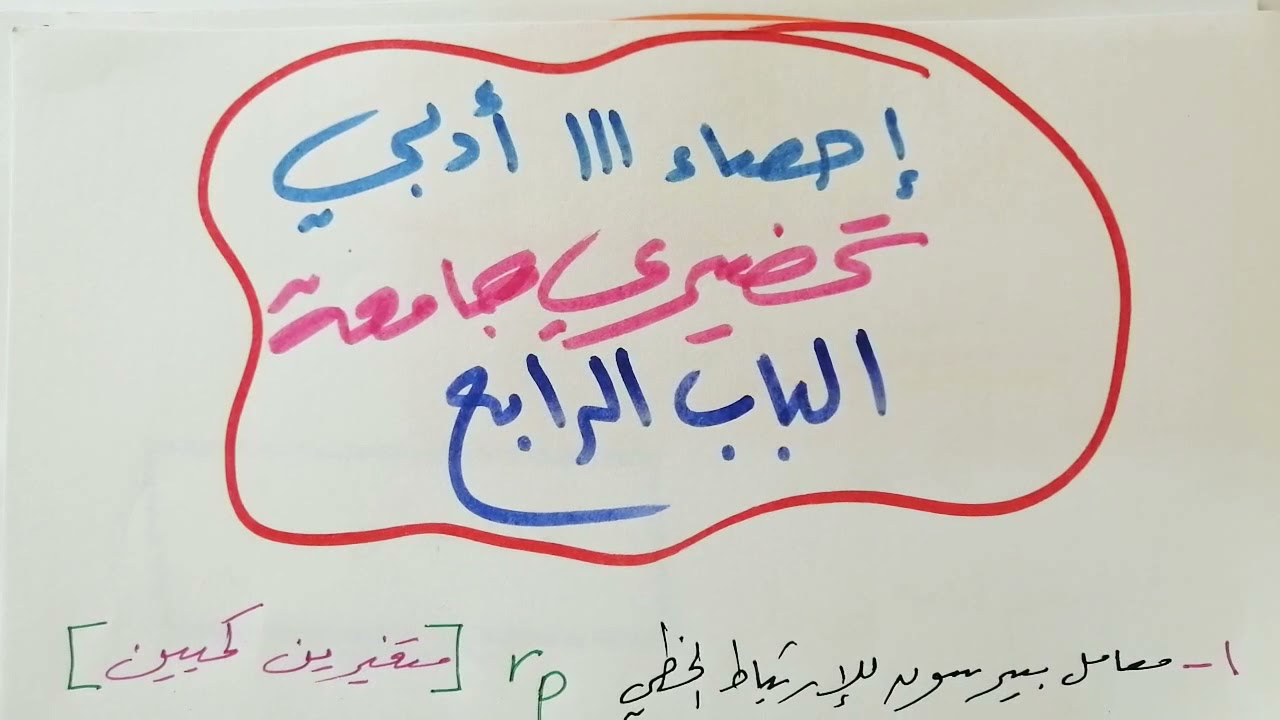 إحصاء ١١١ أدبي
تحضيري جامعة
الباب الرابع
١- معامل بيرسون للإرتباط الخطي rp [متغيرين كميين]